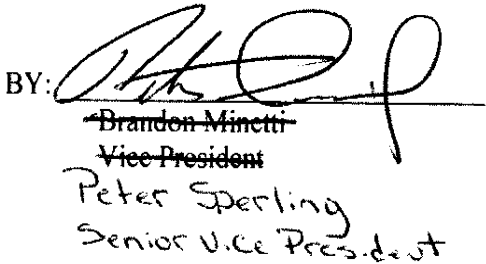 BY:
Brandon Minetti
Vice President
Peter Sperling
Senior Vice President